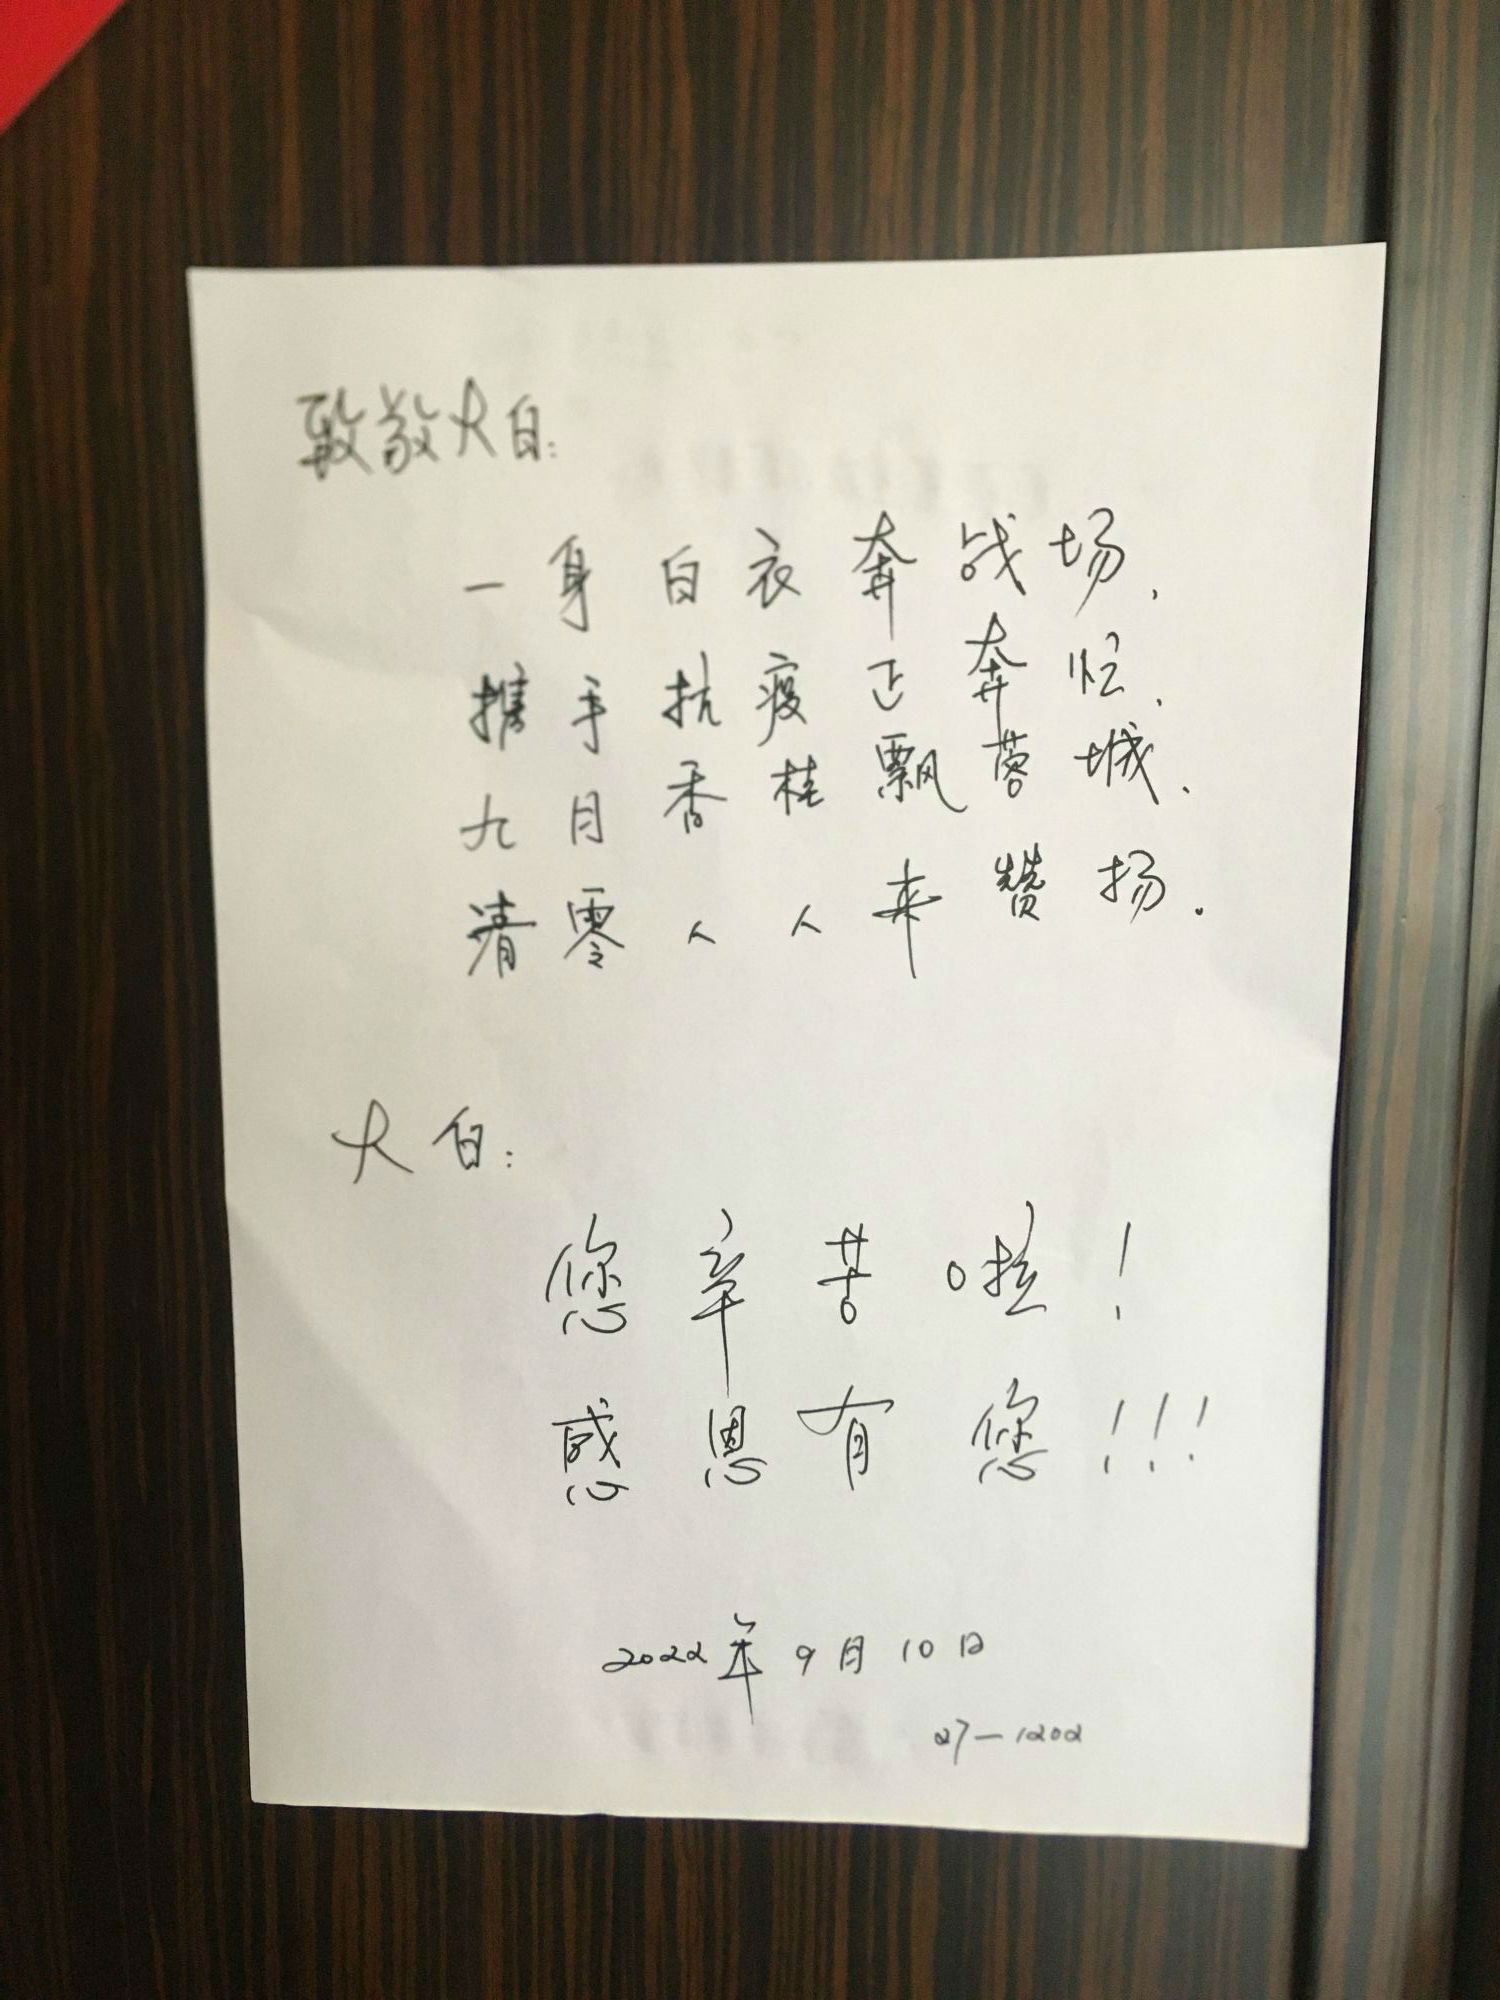 致敬大白:
一身白衣奔战场,
携手抗疫正奔忙,
九月香桂飘蓉城,
清零人人来赞扬.
大白:
您辛苦啦!
感恩有您!!!
2022年9月10日
27-1202